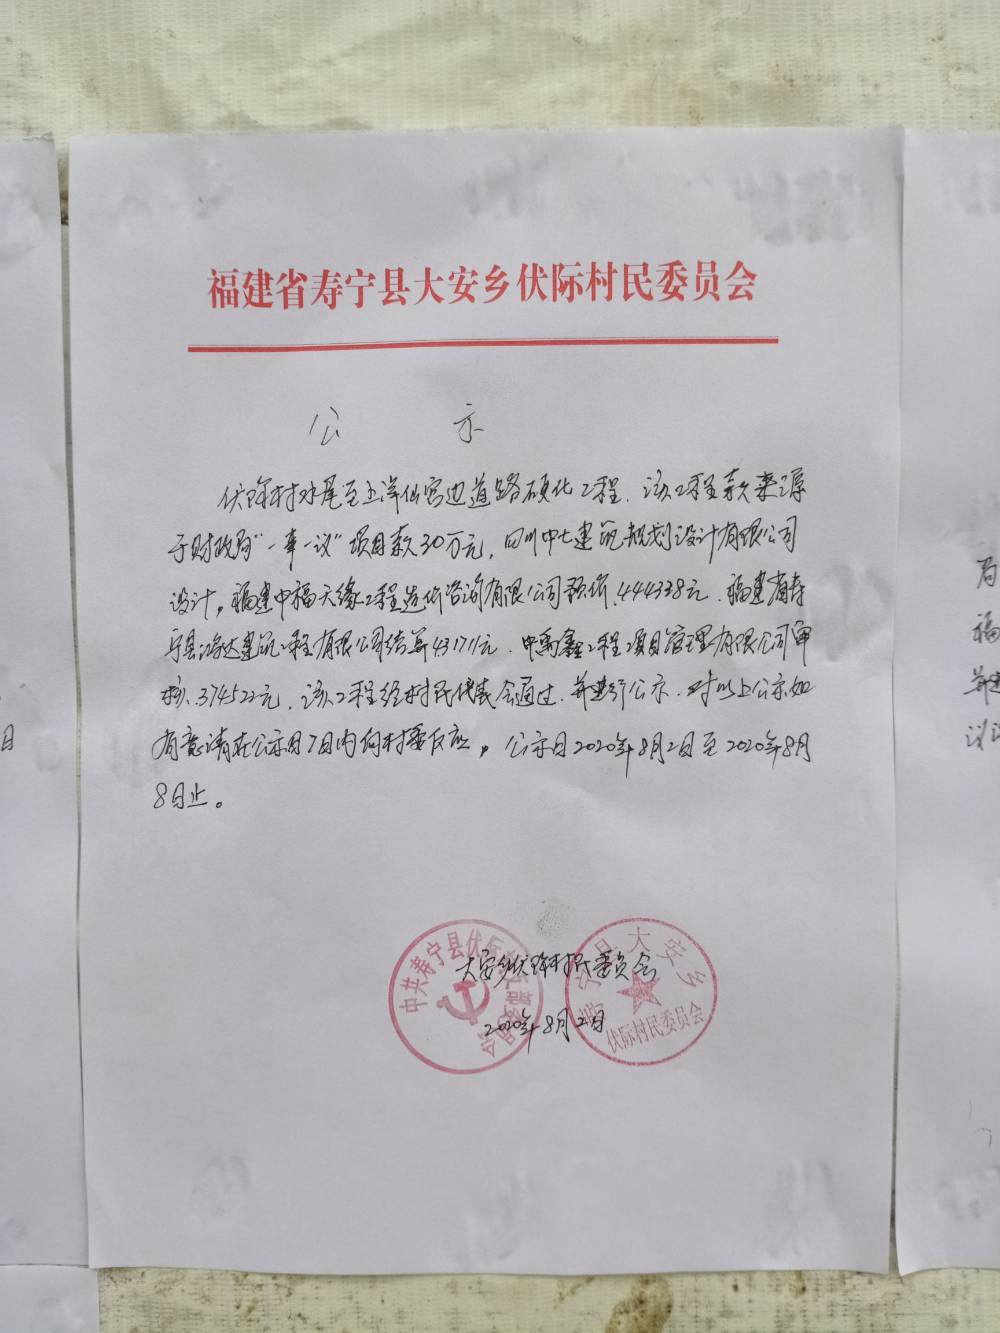 福建省寿宁县大安乡伏际村民委员会
公示
伏际村水尾至上洋仙宫边道路硬化工程，该工程款来源
于财政局“一事一议”项目款30万元，四川中七建筑规划设计有限公司
设计，福建中福天缘工程造价咨询有限公司预价，444338元，福建省寿
宁县鸿达建筑工程有限公司结算431711元，中禹鑫工程项目管理有限公司审
核，374522元，该工程经村民代表会通过，并进行公示，对以上公示如
有意请在公示日7日内向村委反应，公示日2020年8月2日至2020年8月
8日止。
大安乡伏际村民委员会
2020年8月2日
中共寿宁县伏际村
寿宁县大安乡
伏际村民委员会
日
局
福
并进
议